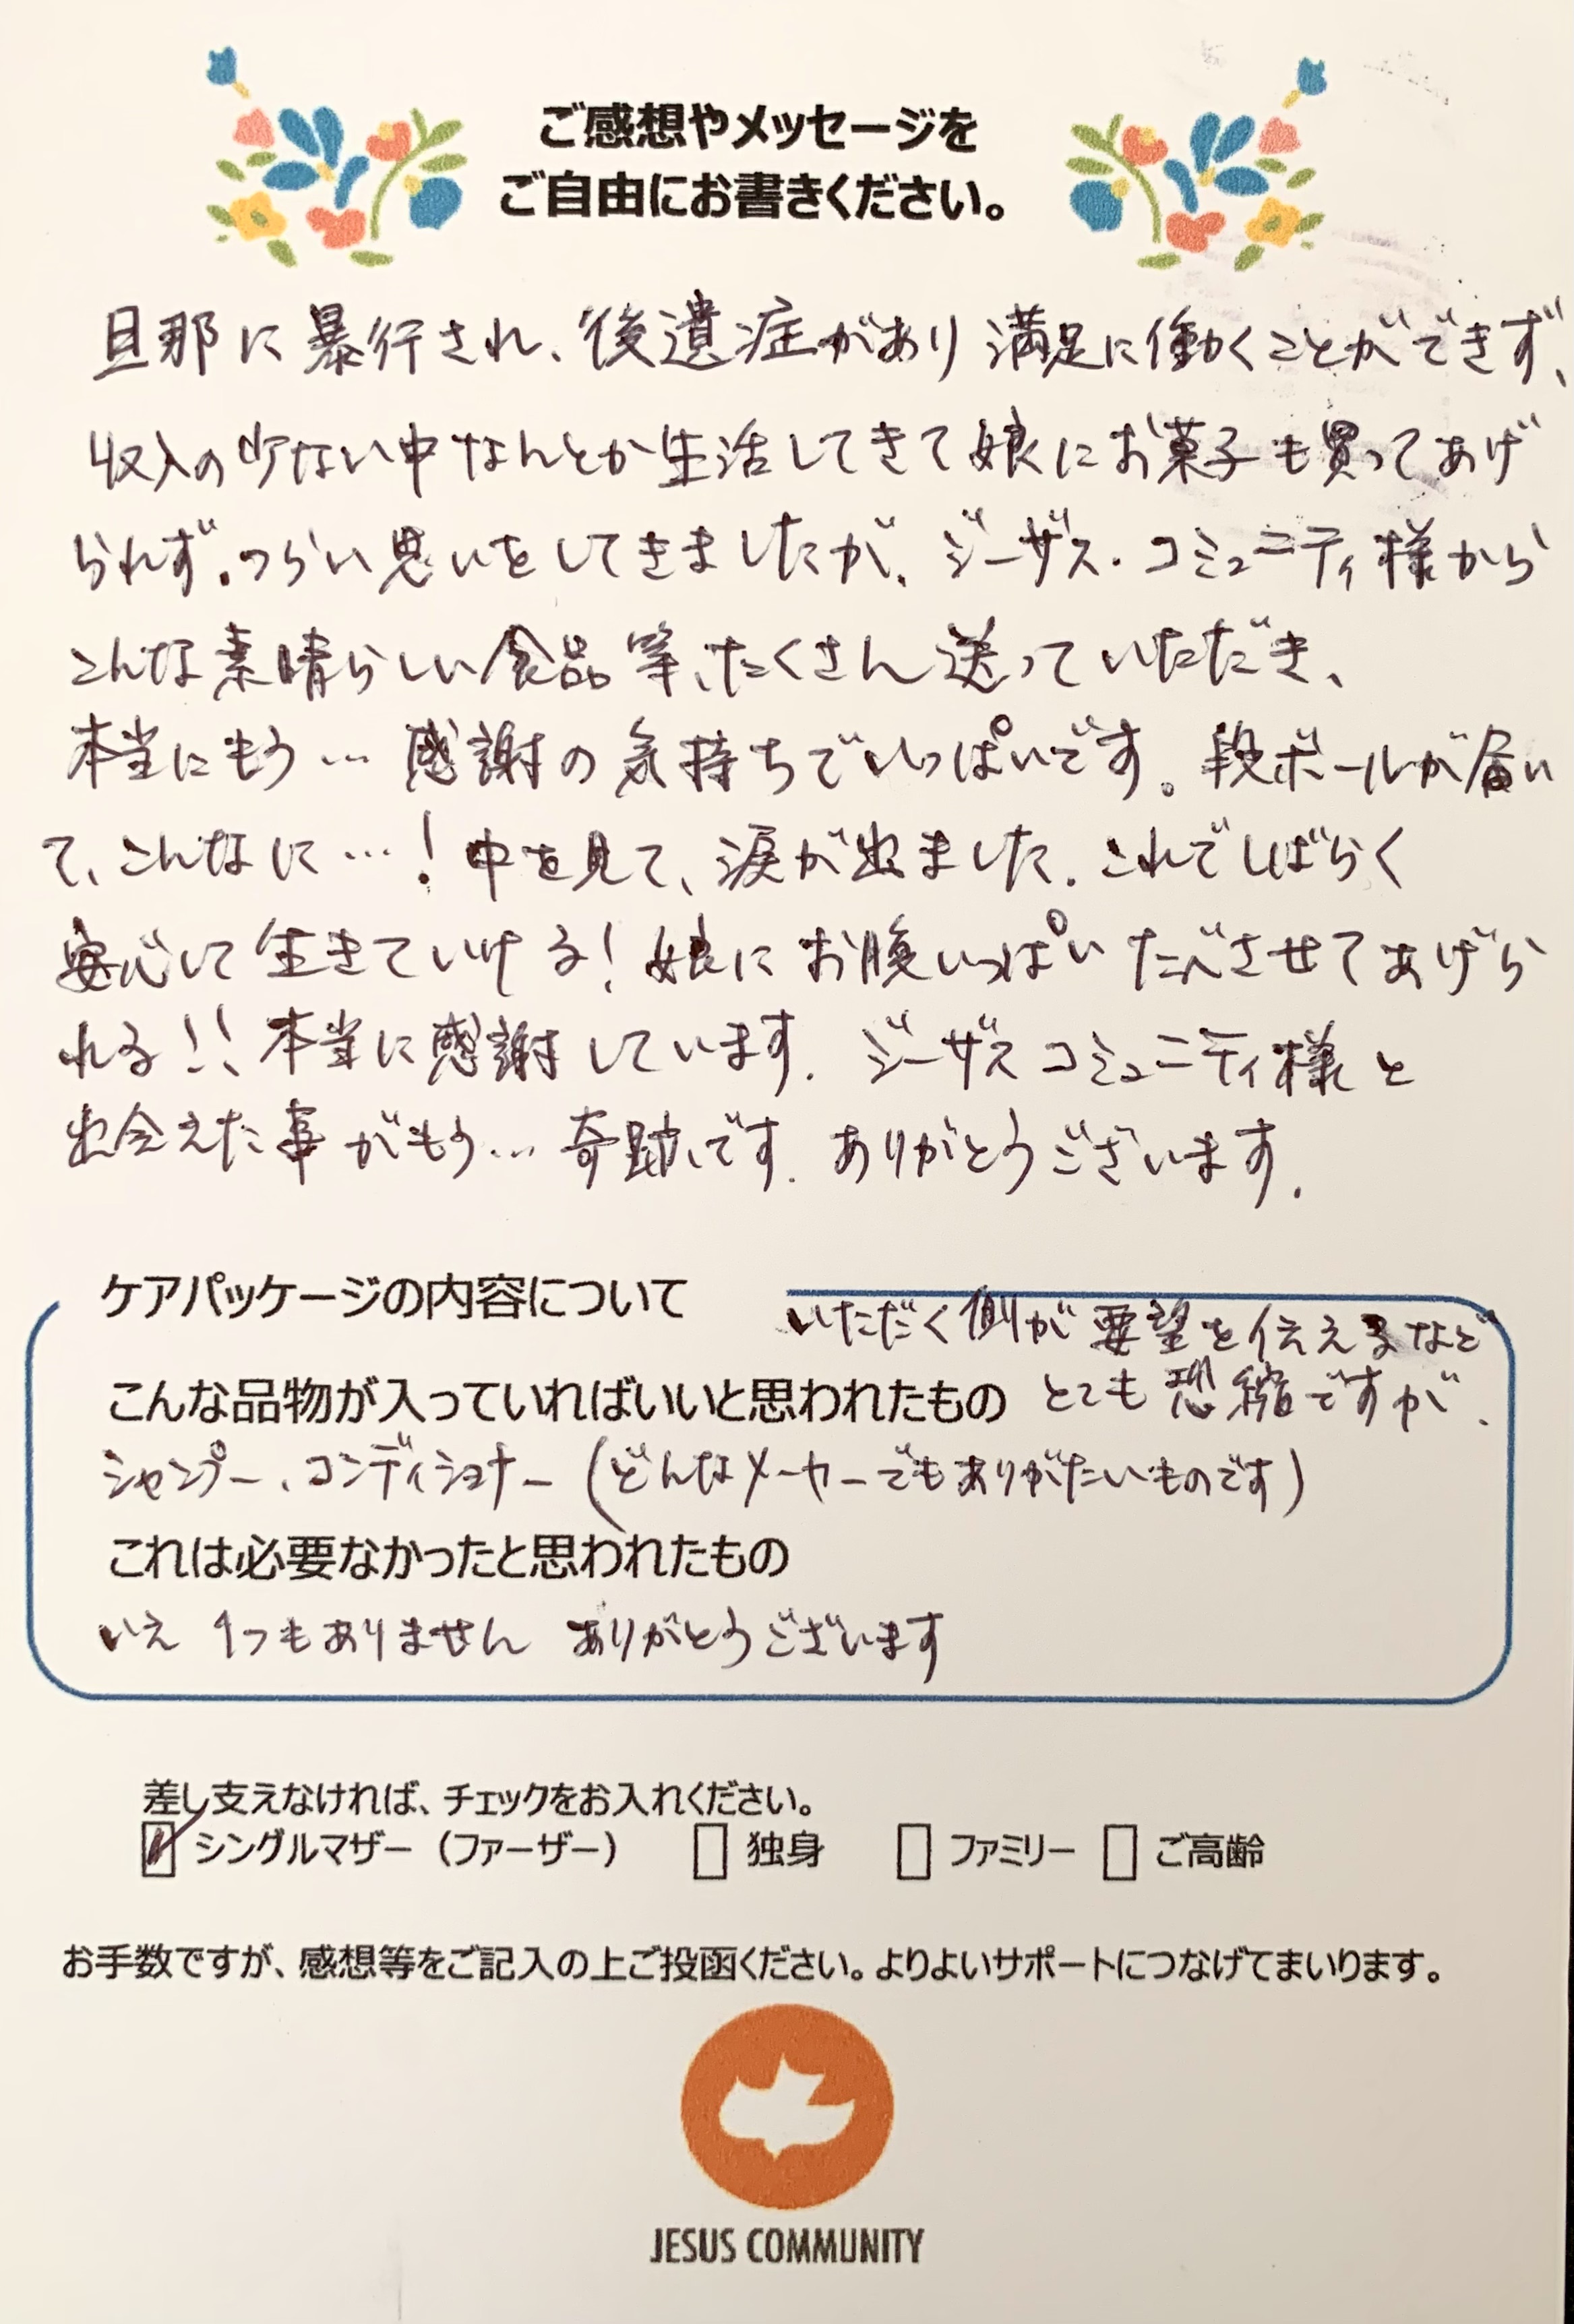 ご感想やメッセージを
ご自由にお書きください。
旦那に暴行され、後遺症があり満足に働くことができず、
収入の少ない中なんとか生活してきて娘にお菓子も買ってあげ
られず。つらい思いをしてきましたが、ジーザス・コミュニティ様から
こんな素晴らしい食品等、たくさん送っていただき、
本当にもう…感謝の気持ちでいっぱいです。段ボールが届い
て、こんなに…!中を見て、涙が出ました。これでしばらく
安心して生きていける!娘にお腹いっぱいたべさせてあげら
れる!!本当に感謝しています。ジーザスコミュニティ様と
出会えた事がもう…奇跡です。ありがとうございます。
ケアパッケージの内容について
いただく側が要望を伝えるなど
こんな品物が入っていればいいと思われたもの とても恐縮ですが、
シャンプー、コンディショナー(どんなメーカーでもありがたいものです)
これは必要なかったと思われたもの
いえ 1つもありません ありがとうございます
差し支えなければ、チェックをお入れください。
シングルマザー(ファーザー) 独身 ファミリー ご高齢
お手数ですが、感想等をご記入の上ご投函ください。よりよいサポートにつなげてまいります。
JESUS COMMUNITY